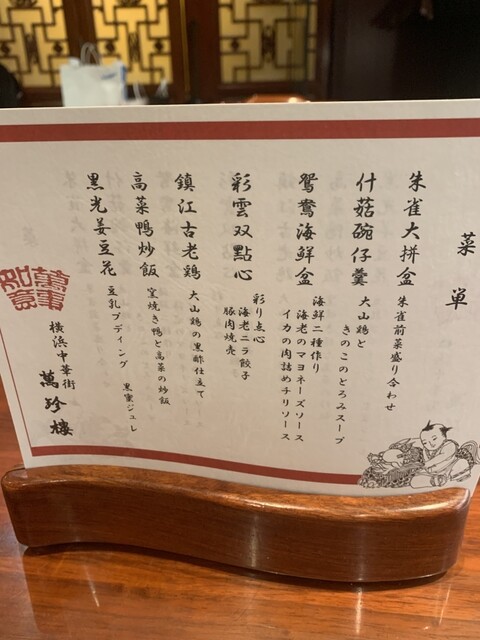 菜単
朱雀大拼盆 朱雀前菜盛り合わせ
什菇碗仔羹 大山鶏と
きのこのとろみスープ
鴛鴦海鮮盆 海鮮二種作り
海老のマヨネーズソース
イカの肉詰めチリソース
彩雲双點心 彩り点心
海老ニラ餃子
豚肉焼売
鎮江古老鶏 大山鶏の黒酢仕立て
高菜鴨炒飯 窯焼き鴨と高菜の炒飯
黒光姜豆花 豆乳プディング 黒蜜ジュレ
横浜中華街 萬珍樓
萬事如意